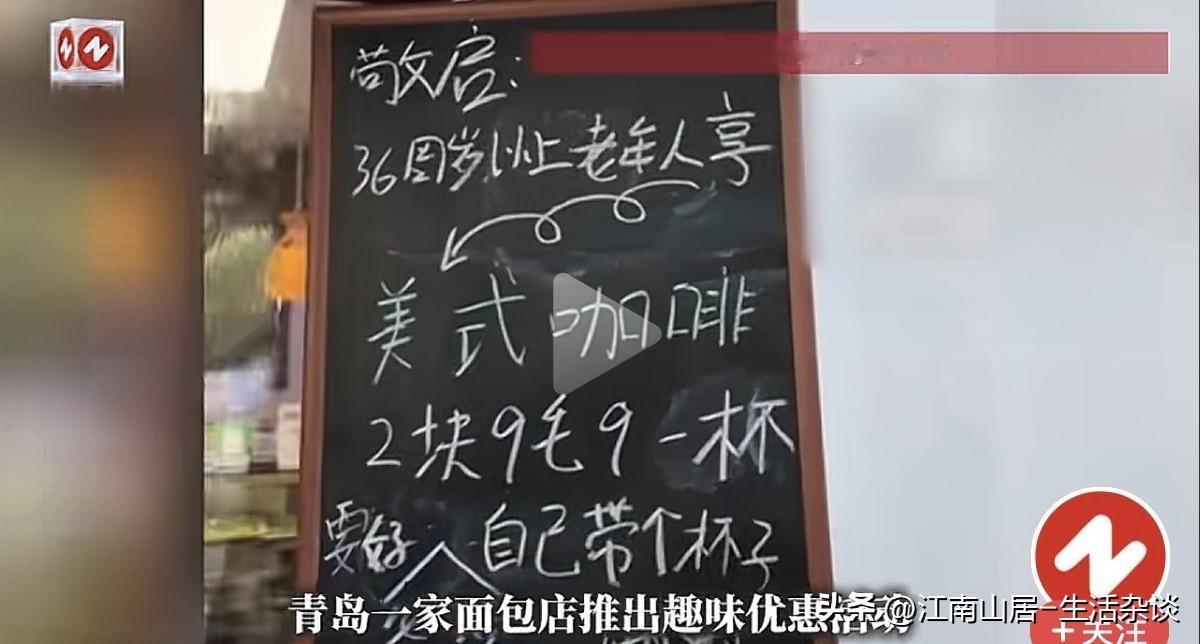 敬启:
36周岁以上老年人享
美式咖啡
2块9毛9一杯
要
自己带个杯子
青岛一家面包店推出趣味优惠活动
头条@江南山居-生活杂谈
+关注